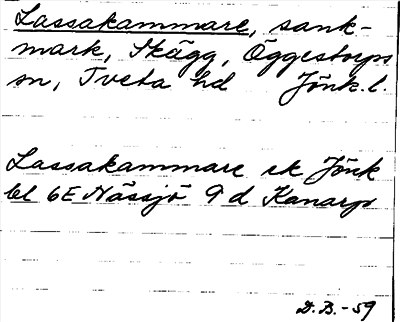 Lassakammare, sank-
mark, Skägg, Öggestorps
sn, Tveta hd Jönk. l.
Lassakammare ek Jönk
bl 6E Nässjö 9 d Kanarp
D.B.-59